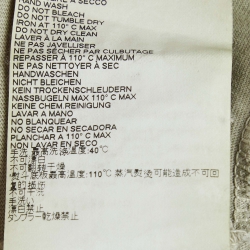 HAND WASH
DO NOT BLEACH
DO NOT TUMBLE DRY
IRON AT 110° C MAX
DO NOT DRY CLEAN
LAVER À LA MAIN
NE PAS JAVELLISER
NE PAS SÉCHER PAR CULBUTAGE
REPASSER À 110° C MAXIMUM
NE PAS NETTOYER À SEC
HANDWASCHEN
NICHT BLEICHEN
KEIN TROCKENSCHLEUDERN
NASSBUGELN MAX 110° C MAX
KEINE CHEM.REINIGUNG
LAVAR A MANO
NO BLANQUEAR
NO SECAR EN SECADORA
PLANCHAR A 110° C MAX
NON LAVAR EN SECO
手洗 最高洗涤温度:40℃
不可漂白
不可翻转干燥
熨斗底板最高温度:110℃ 蒸汽熨烫可能造成不可回
复的损伤
不可干洗
手洗い
漂白禁止
タンブラー乾燥禁止